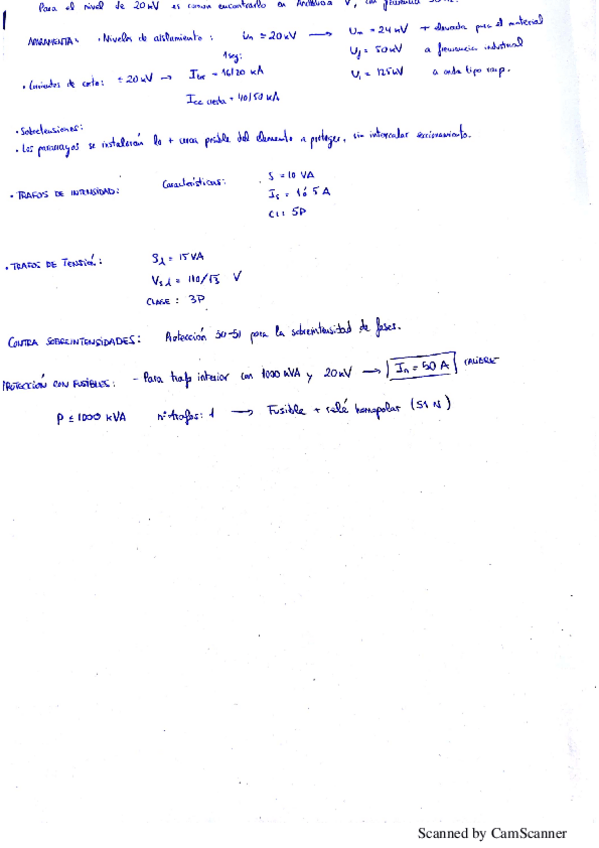 Para el nivel de 20 kV es común encontrarlo en Andalucía V, con frecuencia 50 Hz.
APARAMENTA: · Niveles de aislamiento: Un = 20 kV → Um = 24 kV + elevada para el material
Uf = 50 kV a frecuencia industrial
Ui = 125 kV a onda tipo rayo.
1 seg:
· Corrientes de corto: = 20 kV → Iter = 16/20 kA
Icc cresta = 40/50 kA
· Sobretensiones:
· Los pararrayos se instalarán lo + cerca posible del elemento a proteger, sin intercalar seccionamiento.
· TRAFOS DE INTENSIDAD: Características: S = 10 VA
Is = 1 ó 5 A
Cl: 5P
· TRAFOS DE TENSIÓN: S1 = 15 VA
Vs1 = 110/√3 V
CLASE: 3P
CONTRA SOBREINTENSIDADES: Protección 50-51 para la sobreintensidad de fases.
PROTECCIÓN CON FUSIBLES: - Para trafo interior con 1000 kVA y 20 kV → In = 50 A CALIBRE
P ≤ 1000 kVA nº trafos: 1 → Fusible + relé homopolar (51 N)
Scanned by CamScanner